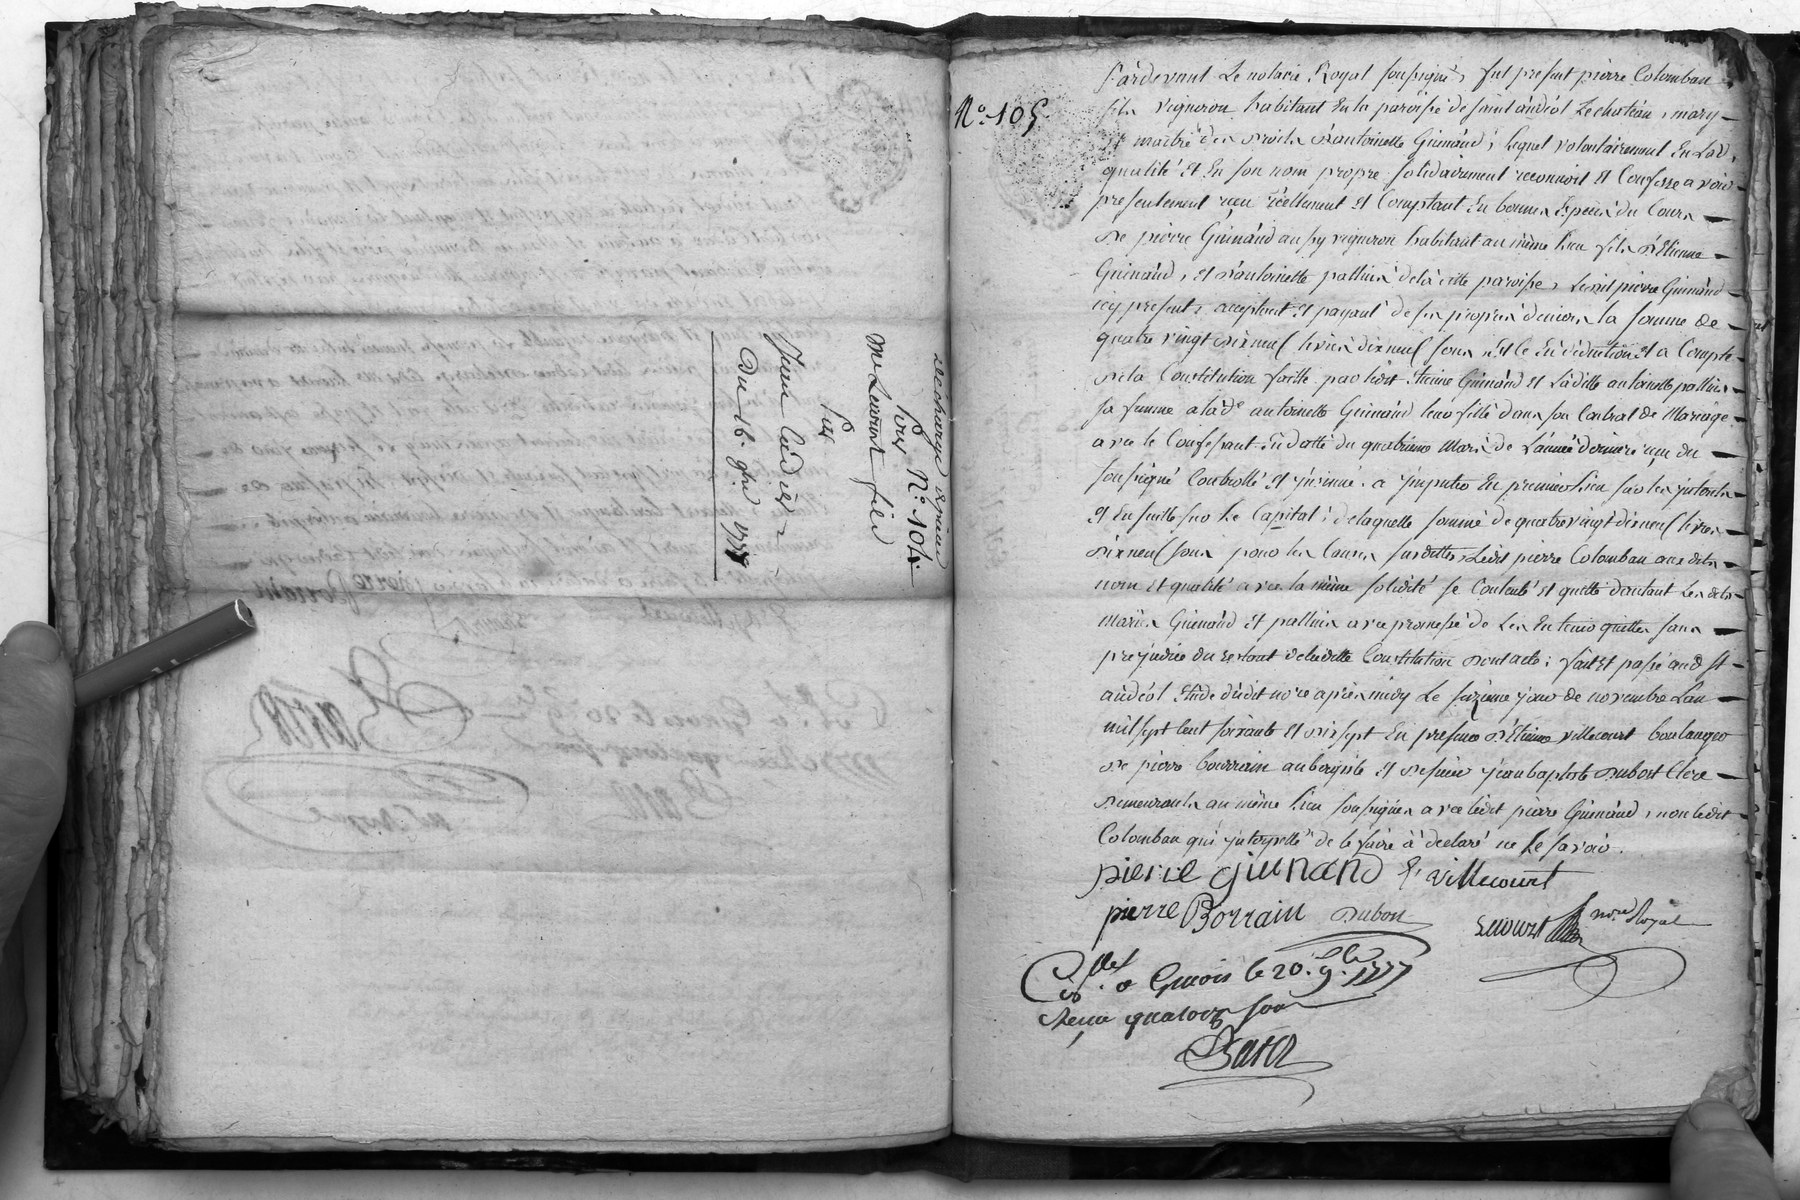 descharge
pour N.o 104.
Me Lecourt
fils
par
Jean
Du 16. 9bre 1777
N.o 105
Pardevant Le notaire Royal soussigné, fut present pierre Colomban
fils vigneron habitant en la paroisse de saint andéol Le chateau, mary
et maitre des droits d'antoinette Guinand; lequel volontairement En Lad.
qualité Et En son nom propre solidairement reconnoit Et Confesse avoir
presentement reçu réellement Et Comptant En bonnes Especes du Cours
de pierre Guinand aussy vigneron habitant au même lieu fils d'Etienne
Guinand, Et d'antoinette pallien de la ditte paroisse, Ledit pierre Guinand
icy present, acceptant Et payant de ses propres deniers la somme de
quatre vingt dix neuf livres dix neuf sous Et ce En déduction Et a Compte
de la Constitution faitte par ledit Etienne Guinand Et Laditte antoinette pallien
sa femme a lad.e antoinette Guinand leur fille dans son Contrat de Mariage
avec le Confessant En datte du quatrieme Mars de L'année derniere reçu du
soussigné Controllé Et insinué. a imputer En premier lieu sur les interets
Et En suitte sur Le Capital; de laquelle somme de quatre vingt dix neuf livres
dix neuf sous pour les Causes surdittes, Ledit pierre Colomban aux dits
nom Et qualité avec la même solidité se Contente Et quitte d'autant Les dits
mariés Guinand Et pallien avec promesse de Les En tenir quittes sans
prejudice du restant de laditte Constitution dont acte; fait Et passé aud. st
andéol Etude dudit no.re après midy Le seizieme jour de novembre L'an
mil sept Cent soixante Et dix sept En presence d'Etienne villecourt boulanger
de pierre bourrain aubergiste Et de sieur jean baptiste dubost Clerc
demeurants au même lieu soussignés avec ledit pierre Guinand, non ledit
Colomban qui interpellé de le faire a declaré ne Le savoir.
pierre giunand E. villecourt
pierre Borrain dubost
Lecourt no.re Royal
C.ollé a Givois le 20. 9.bre 1777
Reçu quatorze sous